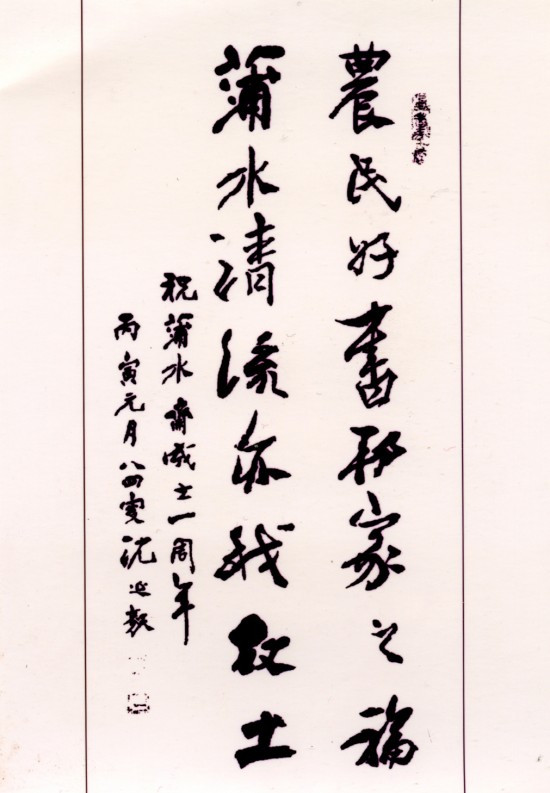 農民好書邦家之福
蒲水清流亦我故土
祝蒲水齋成立一周年
丙寅元月八四叟沈延毅